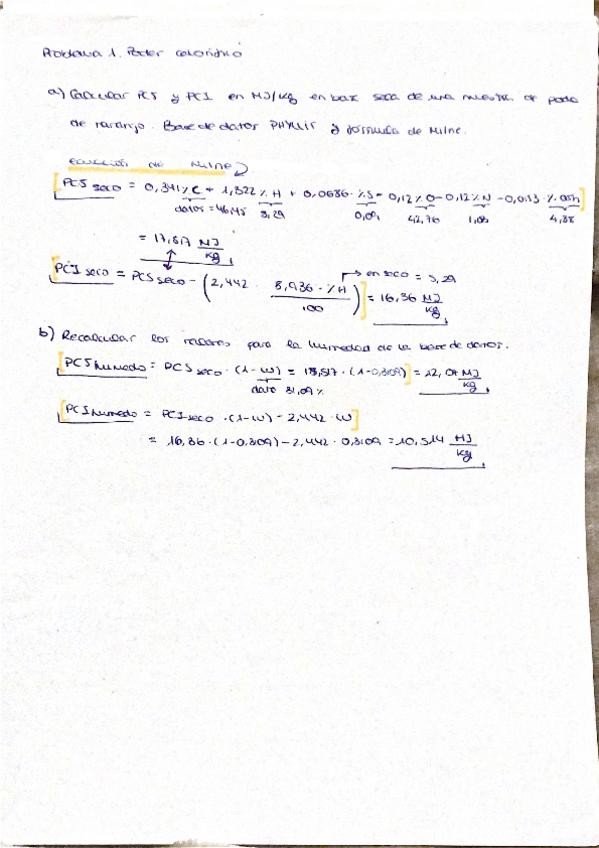 Problema 1. Poder calorífico
a) Calcular PCS y PCI en MJ/kg en base seca de una muestra de poda
de naranjo. Base de datos PHYLLIS y fórmula de Milne.
ecuación de Milne
PCS seco = 0,341·%C + 1,322·%H + 0,0686·%S - 0,12·%O - 0,12·%N - 0,0153·%ash
datos = 46,45 5,29 0,09 42,76 1,03 4,38
= 17,517 MJ/kg
PCI seco = PCS seco - (2,442 · 8,936 · %H / 100) = 16,36 MJ/kg
en seco = 5,29
b) Recalcular los valores para la humedad de la base de datos.
[PCS humedo = PCS seco · (1-w) = 17,517 · (1-0,3109)] = 12,07 MJ/kg
dato 31,09%
[PCI humedo = PCI seco · (1-w) - 2,442 · w]
= 16,36 · (1-0,3109) - 2,442 · 0,3109 = 10,514 MJ/kg